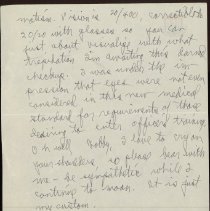 motion. Vision is 20/400, correctible to
20/20 with glasses so you can
just about visualize with what
trepidation I'm awaiting this coming
checkup. I was under the im-
pression that eyes were not even
considered in this new medical
standard for requirements of those
desiring to enter officers training
Oh well Bobby, I love to cry on
your shoulders, so please bear with
me - be sympathetic while I
continue to moan. It is just
my custom.